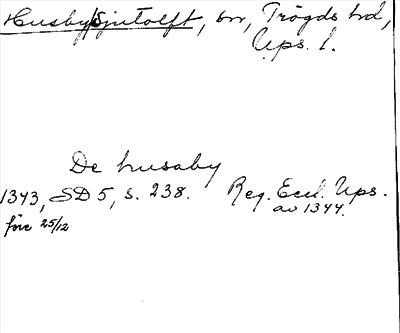 Husby/Sjutolft, sn, Trögds hd,
Ups. l.
De husaby
1343, SD 5, s. 238. Reg. Eccl. Ups.
av 1344.
före 25/12